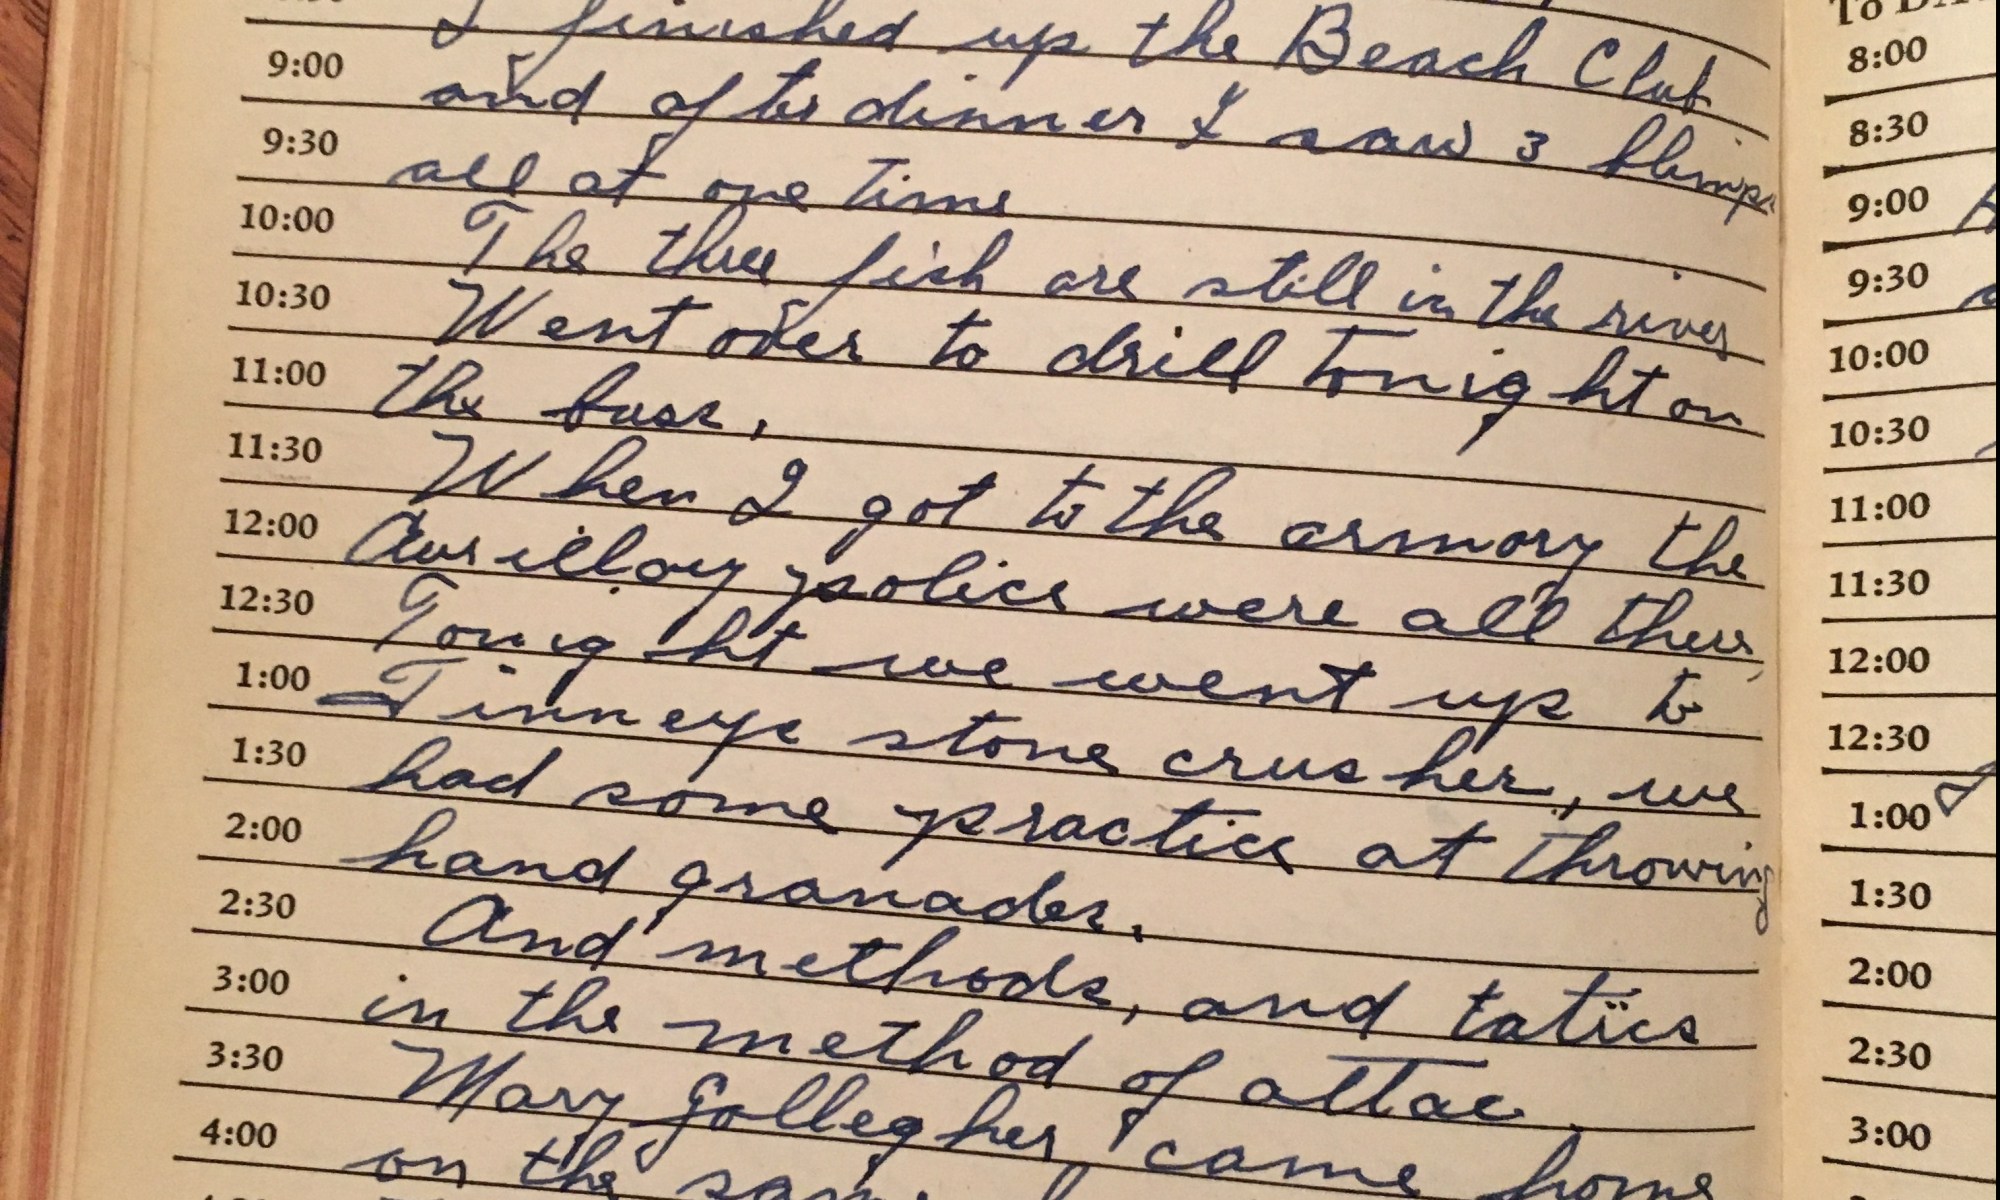 I finished up the Beach Club
9:00
and after dinner I saw 3 blimps
9:30
all at one time
10:00
The three fish are still in the river
10:30
Went over to drill tonight on
11:00
the buss,
11:30
When I got to the armory the
12:00
Auxillary police were all there,
12:30
Tonight we went up to
1:00
Tinneys stone crusher, we
1:30
had some practice at throwing
2:00
hand granades.
2:30
And methods, and tatics
3:00
in the method of attac.
3:30
Mary Gallegher came home
4:00
on the same
8:00
8:30
9:00
9:30
10:00
10:30
11:00
11:30
12:00
12:30
1:00
1:30
2:00
2:30
3:00